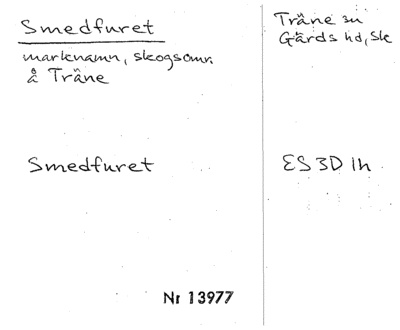 Smedfuret
marknamn, skogsomr.
å Träne
Smedfuret
Nr 13977
Träne sn
Gärds hd, Sk
ES 3D 1h